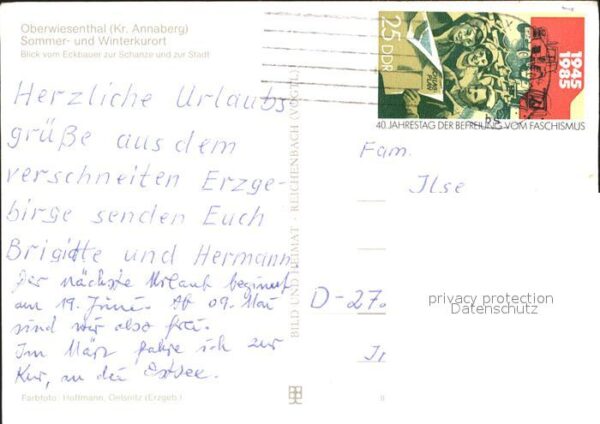 Oberwiesenthal (Kr. Annaberg)
Sommer- und Winterkurort
Blick vom Eckbauer zur Schanze und zur Stadt
Herzliche Urlaubs-
grüße aus dem
verschneiten Erzge-
birge senden Euch
Brigitte und Hermann
Der nächste Urlaub beginnt
am 19. Juni. Ab 09. Mai
sind wir also frei.
Im März fahre ich zur
Kur, an die Ostsee.
Farbfoto: Hoffmann, Oelsnitz (Erzgeb.)
BILD UND HEIMAT · REICHENBACH (VOGTL)
25 DDR
1945
1985
40. JAHRESTAG DER BEFREIUNG VOM FASCHISMUS
Fam.
Ilse
D-27
privacy protection
Datenschutz